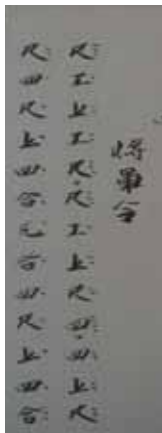 將軍令
尺工上工尺尺工上尺四四上尺
尺四尺上四合工合四尺上四合